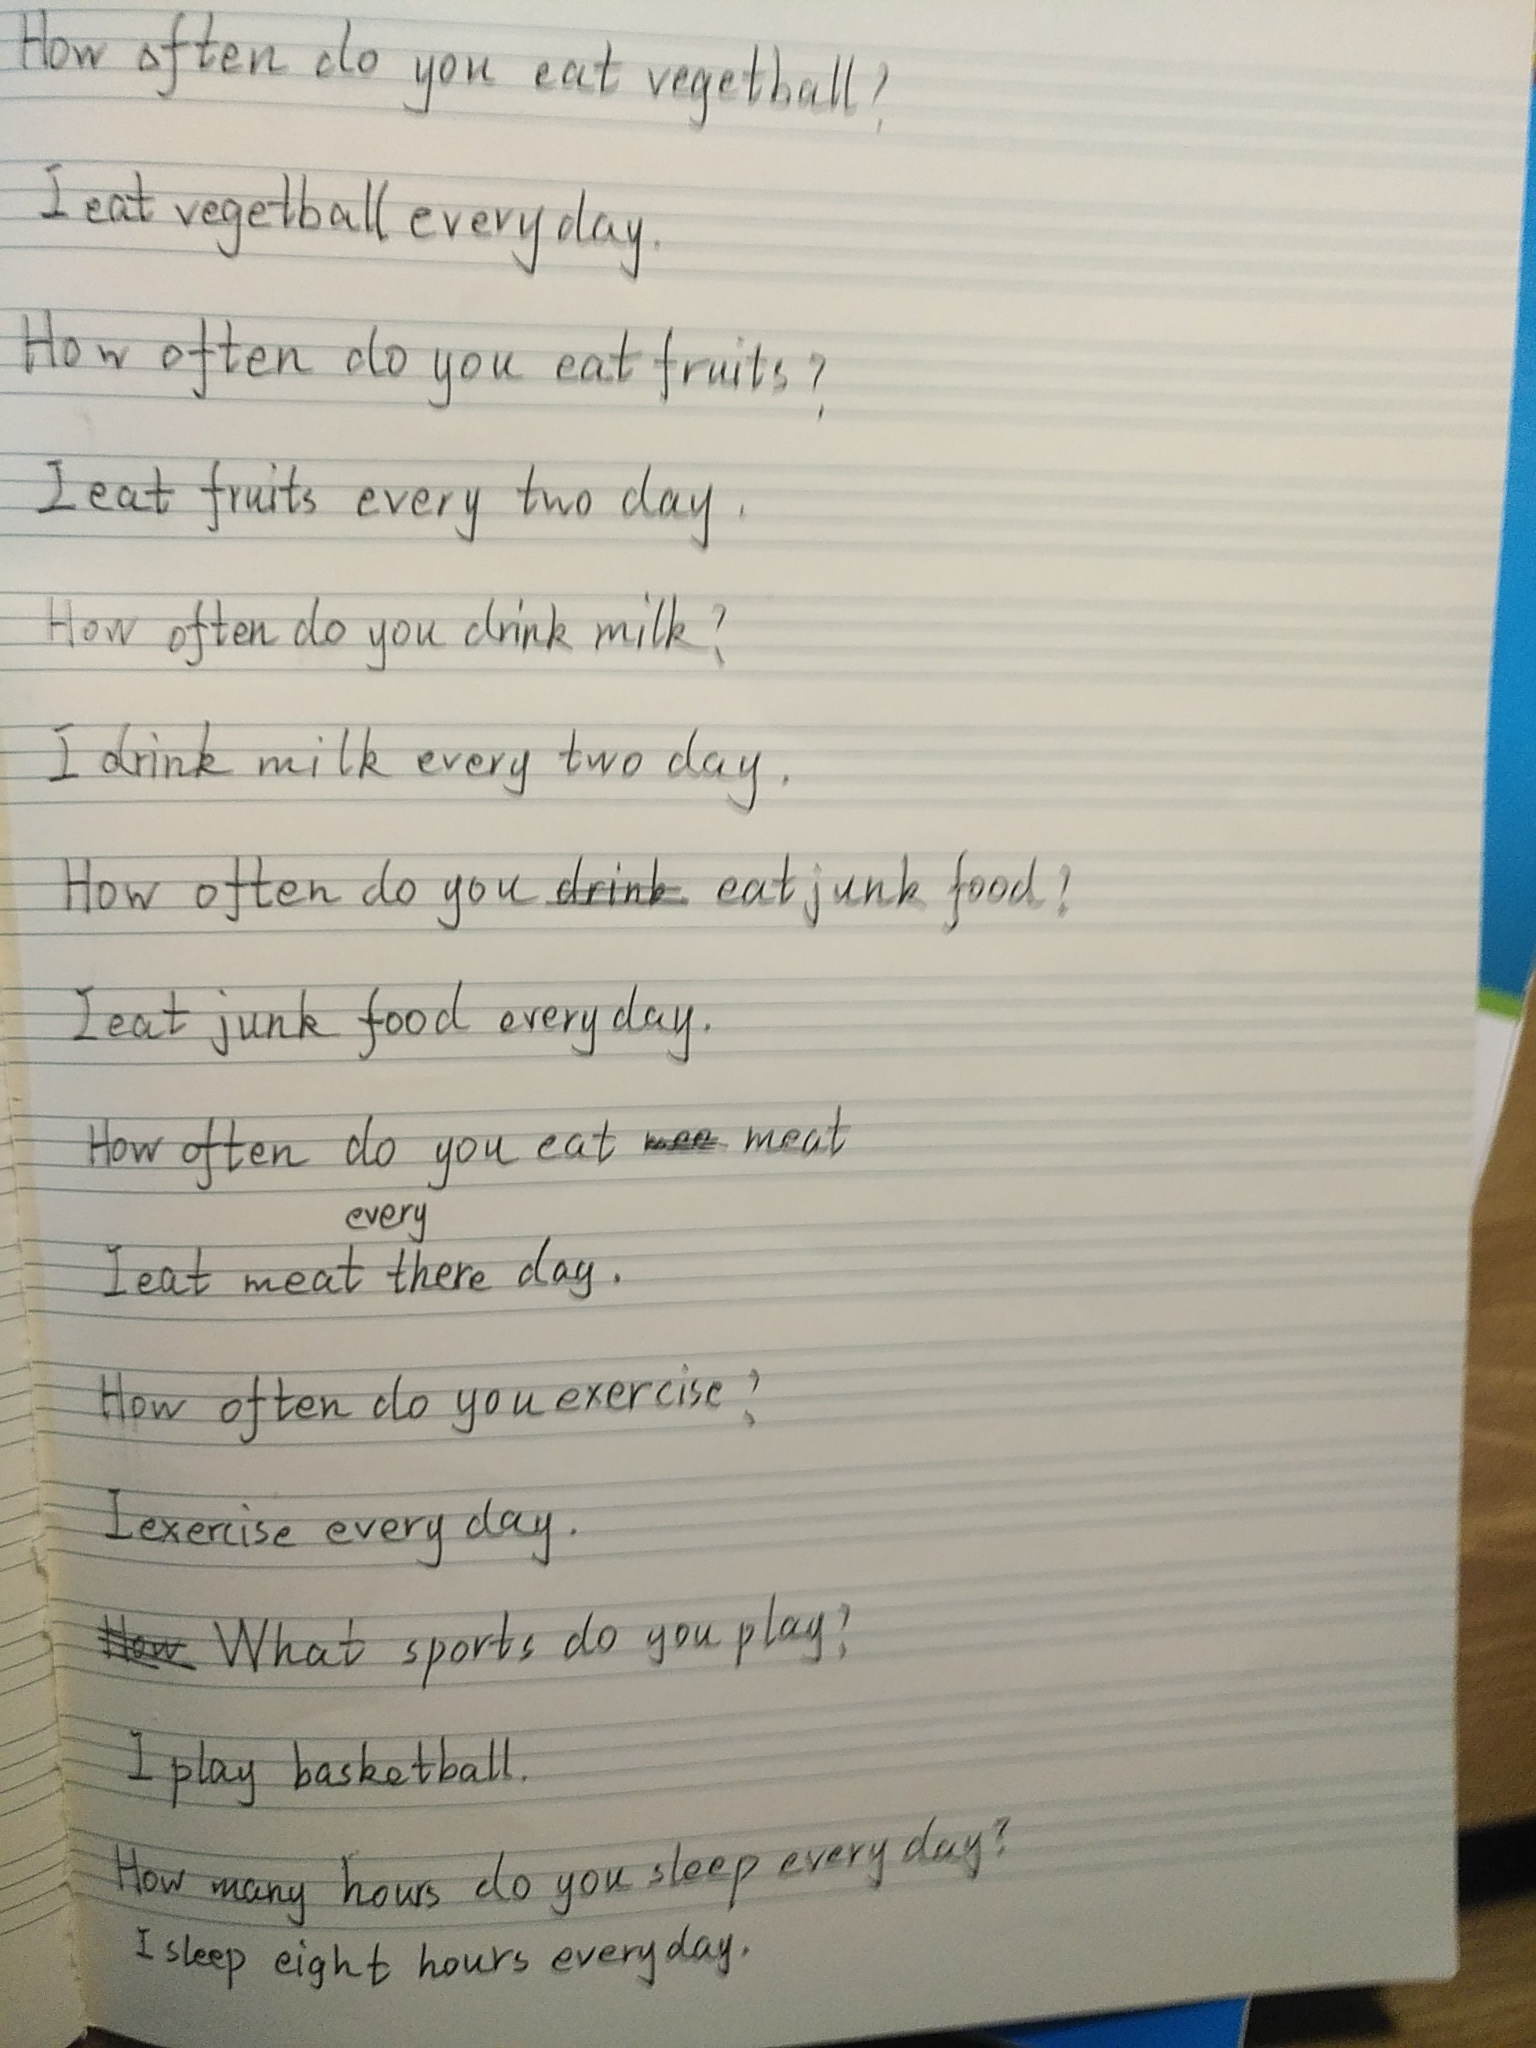 How often do you eat vegetball?
I eat vegetball every day.
How often do you eat fruits?
I eat fruits every two day.
How often do you drink milk?
I drink milk every two day.
How often do you drink eat junk food?
I eat junk food every day.
How often do you eat mea meat
every
I eat meat there day.
How often do you exercise?
I exercise every day.
How What sports do you play?
I play basketball.
How many hours do you sleep every day?
I sleep eight hours every day.